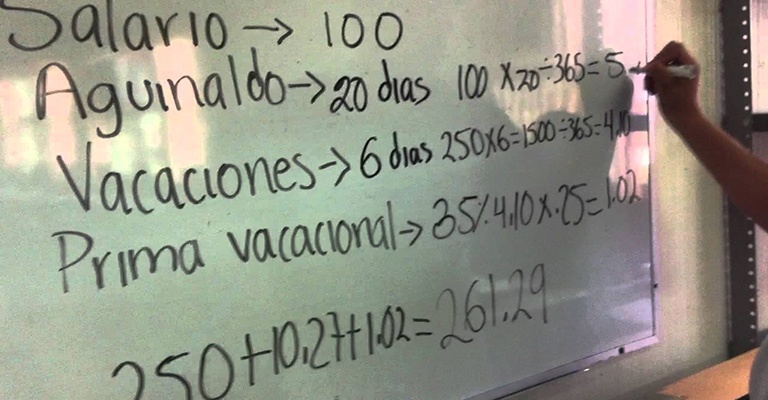 Salario → 100
Aguinaldo → 20 dias 100 x 20 ÷ 365 = 5.
Vacaciones → 6 dias 250 x 6 = 1500 ÷ 365 = 4.10
Prima vacacional → 35% 4.10 x .25 = 1.02
250 + 10.27 + 1.02 = 261.29